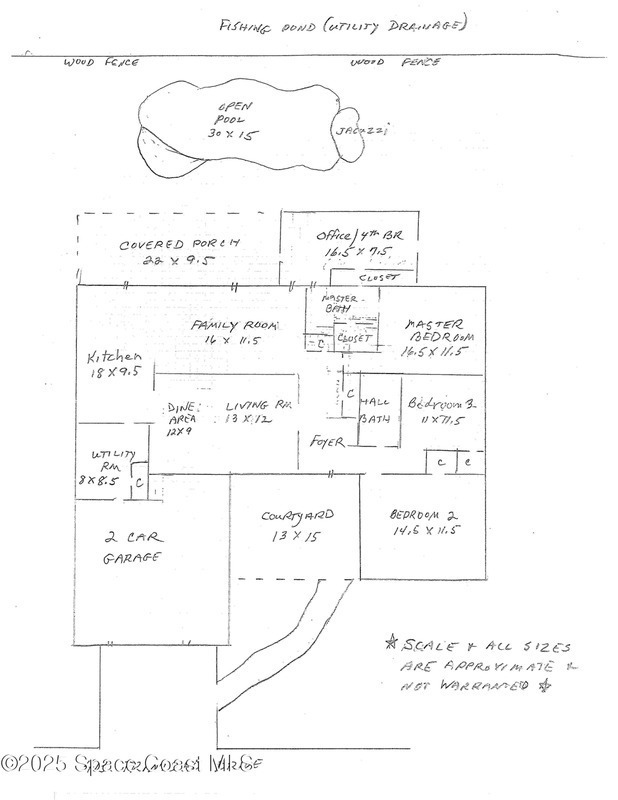 FISHING POND (UTILITY DRAINAGE)
WOOD FENCE
WOOD FENCE
OPEN
POOL
30 X 15
JACUZZI
COVERED PORCH
22 X 9.5
OFFICE/4TH BR
16.5 X 7.5
CLOSET
MASTER
BATH
FAMILY ROOM
16 X 11.5
CLOSET
C
MASTER
BEDROOM
16.5 X 11.5
Kitchen
18 X 9.5
C
HALL
BATH
Bedroom 3
11 X 11.5
DINE
AREA
12X9
LIVING RM
13 X 12
FOYER
UTILITY
RM
8 X 8.5
C
C
C
2 CAR
GARAGE
COURTYARD
13 X 15
BEDROOM 2
14.5 X 11.5
☆ SCALE & ALL SIZES
ARE APPROXIMATE &
NOT WARRANTED ☆
©2025 Space Coast MLS